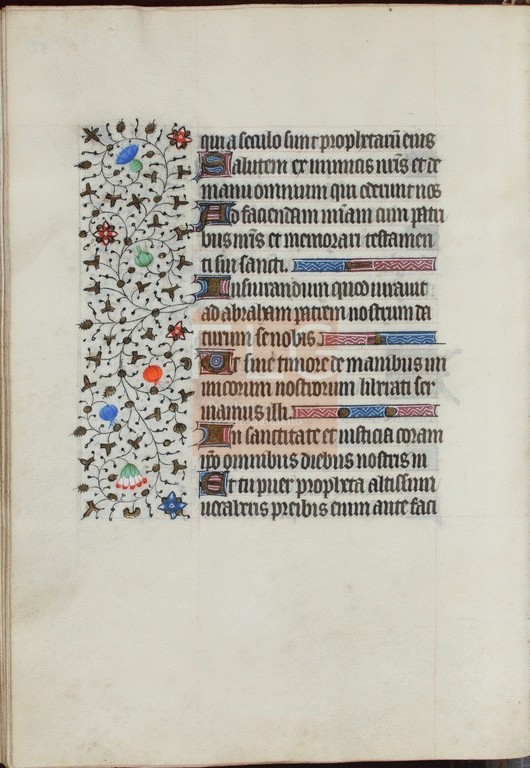 qui a seculo sunt prophetarũ eius
Salutem ex inimicis nr̃is et de
manu omnium qui oderunt nos
Ad faciendam mĩam cum patri
bus nr̃is et memorari testamen
ti sui sancti.
Iusiurandum quod iurauit
ad abraham patrem nostrum da
turum se nobis.
Ut sine timore de manibus ini
micorum nostrorum liberati ser
uiamus illi.
In sanctitate et iusticia coram
ip̃o omnibus diebus nostris
Et tu puer propheta altissimi
uocaberis preibis enim ante faci